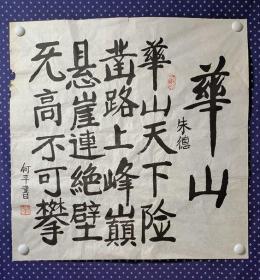 華山
朱德
華山天下险
凿路上峰巔
悬崖連絶壁
无高不可攀
何平書